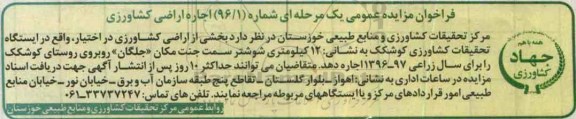 فراخوان مزایده عمومی یک مرحله ای شماره (۹۶/۱) اجاره اراضی کشاورزی
مرکز تحقیقات کشاورزی و منابع طبیعی خوزستان در نظر دارد بخشی از اراضی کشاورزی در اختیار، واقع در ایستگاه
تحقیقات کشاورزی کوشکک به نشانی: ۱۲ کیلومتری شوشتر سمت جنت مکان «جلگان» روبروی روستای کوشکک
را برای سال زراعی ۹۷-۱۳۹۶ اجاره دهد. متقاضیان می توانند حداکثر ۱۰ روز پس از انتشار آگهی جهت دریافت اسناد
مزایده در ساعات اداری به نشانی: اهواز ـ بلوار گلستان ـ تقاطع پنج طبقه سازمان آب و برق ـ خیابان نور ـ خیابان منابع
طبیعی امور قراردادهای مرکز و یا ایستگاههای مربوطه مراجعه نمایند. تلفن های تماس: ۳۳۷۳۷۲۴۷-۰۶۱
روابط عمومی مرکز تحقیقات کشاورزی و منابع طبیعی خوزستان
همه با هم
جهاد
کشاورزی